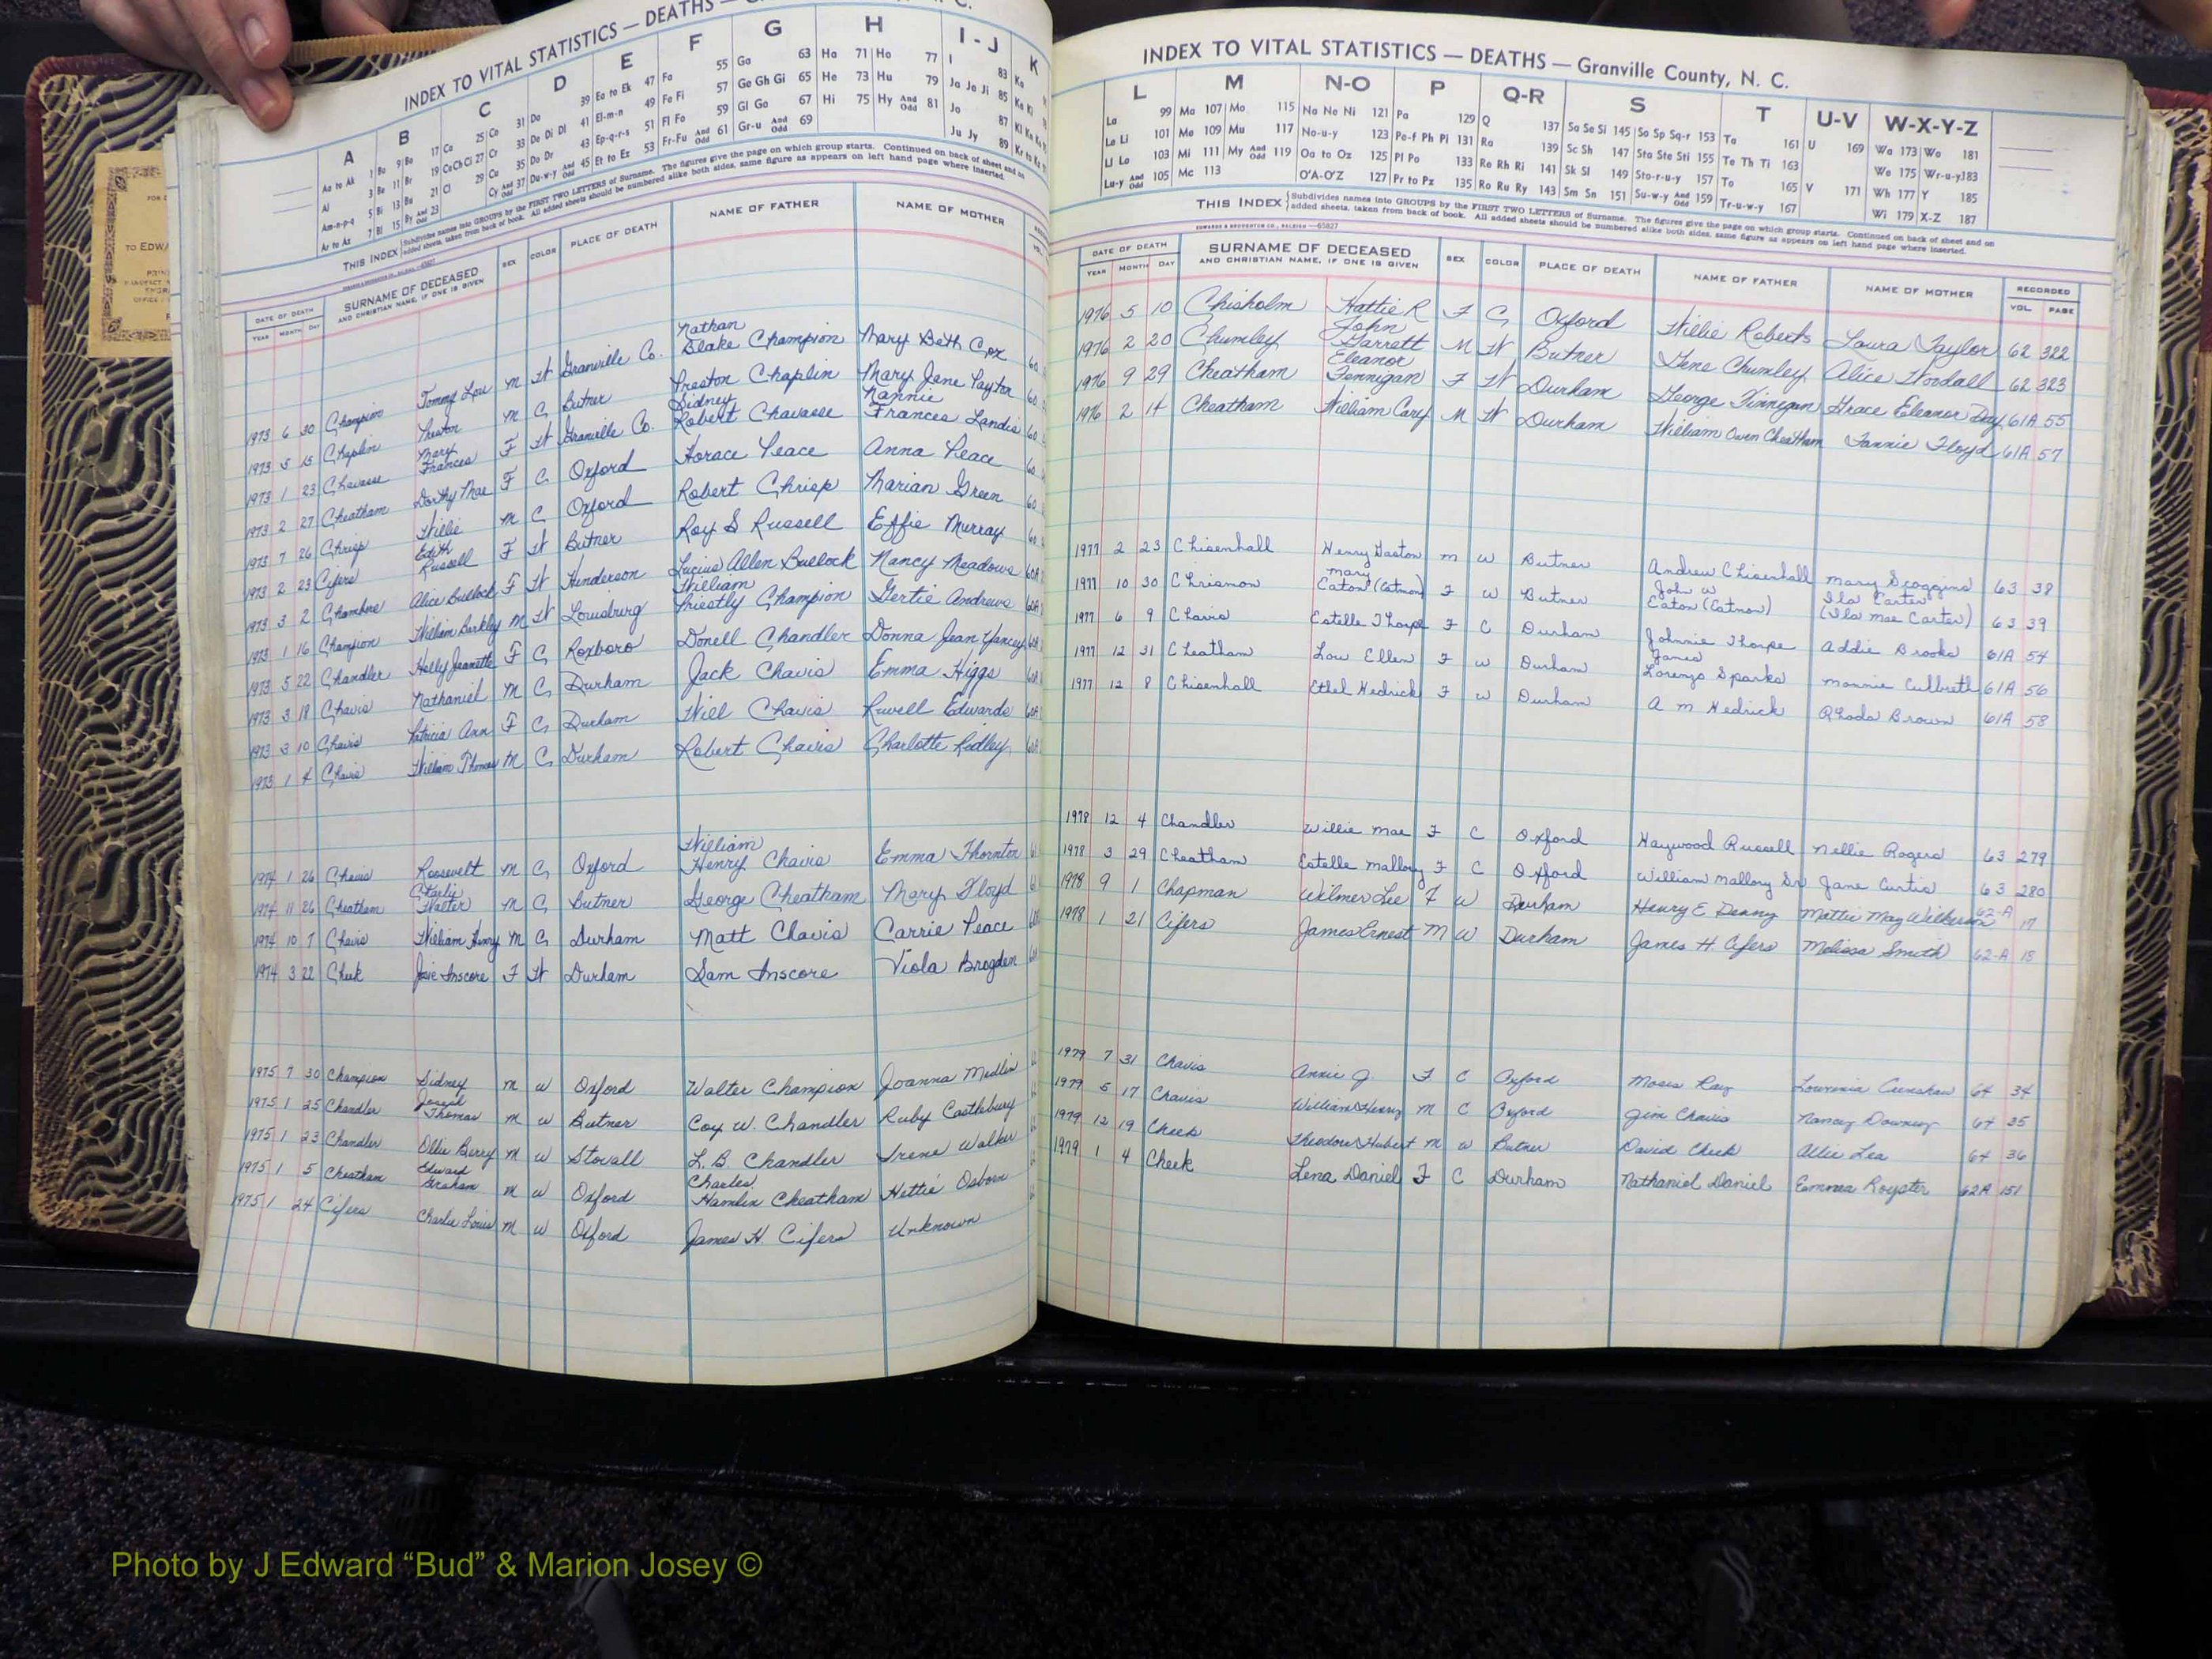 INDEX TO VITAL STATISTICS — DEATHS —
A B C D E F G H I - J K
THIS INDEX Subdivides names into GROUPS by the FIRST TWO LETTERS of Surname. The figures give the page on which group starts. Continued on back of sheet and on
added sheets, taken from back of book. All added sheets should be numbered alike both sides, same figure as appears on left hand page where inserted.
DATE OF DEATH SURNAME OF DECEASED SEX COLOR PLACE OF DEATH NAME OF FATHER NAME OF MOTHER
YEAR MONTH DAY AND CHRISTIAN NAME, IF ONE IS GIVEN
1973 6 30 Champion Tommy Lou M W Granville Co. Nathan Blake Champion Mary Beth Cox
1973 5 15 Chaplin Preston M C Butner Preston Chaplin Mary Jane Paytor
1973 1 23 Chavasse Mary Frances F W Granville Co. Sidney Robert Chavasse Nannie Frances Landis
1973 2 27 Cheatham Dorthy Mae F C Oxford Horace Peace Anna Peace
1973 7 26 Chrisp Willie M C Oxford Robert Chrisp Marian Green
1973 2 23 Cifers Edith Russell F W Butner Roy S Russell Effie Murray
1973 3 2 Alice Bullock F W Henderson Lucius Allen Bullock Nancy Meadows
1973 1 16 Champion William Barkley M W Louisburg William Priestly Champion Gertie Andrews
1973 5 22 Chandler Holly Jeanette F C Roxboro Donell Chandler Donna Jean Yancey
1973 3 18 Chavis Nathaniel M C Durham Jack Chavis Emma Higgs
1973 3 10 Chavis Patricia Ann F C Durham Will Chavis Ruvell Edwards
1973 1 4 Chavis William Thomas M C Durham Robert Chavis Charlotte Ridley
1974 1 26 Chavis Roosevelt M C Oxford William Henry Chavis Emma Thornton
1974 11 26 Cheatham Charlie Walter M C Butner George Cheatham Mary Floyd
1974 10 7 Chavis William Henry M C Durham Matt Chavis Carrie Peace
1974 3 22 Cheek Josie Inscore F W Durham Sam Inscore Viola Brogden
1975 7 30 Champion Sidney M W Oxford Walter Champion Joanna Medlin
1975 1 25 Chandler Joseph Thomas M W Butner Coy W. Chandler Ruby Castlebury
1975 1 23 Chandler Ollie Berry M W Stovall L. B. Chandler Irene Walker
1975 1 5 Cheatham Edward Graham M W Oxford Charles Hamlin Cheatham Hettie Osborn
1975 1 24 Cifers Charlie Louis M W Oxford James H. Cifers Unknown
INDEX TO VITAL STATISTICS — DEATHS — Granville County, N. C.
L M N-O P Q-R S T U-V W-X-Y-Z
La 99 Ma 107 Mo 115 Na Ne Ni 121 Pa 129 Q 137 Sa Se Si 145 So Sp Sq-r 153 Ta 161 U 169 Wa 173 Wo 181
Le Li 101 Me 109 Mu 117 No-u-y 123 Pe-f Ph Pi 131 Ra 139 Sc Sh 147 Sta Ste Sti 155 Te Th Ti 163 We 175 Wr-u-y 183
Ll Lo 103 Mi 111 My And Odd 119 Oa to Oz 125 Pl Po 133 Re Rh Ri 141 Sk Sl 149 Sto-r-u-y 157 To 165 V 171 Wh 177 Y 185
Lu-y And Odd 105 Mc 113 O'A-O'Z 127 Pr to Pz 135 Ro Ru Ry 143 Sm Sn 151 Su-w-y And Odd 159 Tr-u-w-y 167 Wi 179 X-Z 187
THIS INDEX Subdivides names into GROUPS by the FIRST TWO LETTERS of Surname. The figures give the page on which group starts. Continued on back of sheet and on
added sheets, taken from back of book. All added sheets should be numbered alike both sides, same figure as appears on left hand page where inserted.
EDWARDS & BROUGHTON CO., RALEIGH —65827
DATE OF DEATH SURNAME OF DECEASED SEX COLOR PLACE OF DEATH NAME OF FATHER NAME OF MOTHER RECORDED
YEAR MONTH DAY AND CHRISTIAN NAME, IF ONE IS GIVEN VOL. PAGE
1976 5 10 Chisholm Hattie R F C Oxford Willie Roberts Laura Taylor 62 322
1976 2 20 Chumley John Garrett M W Butner Gene Chumley Alice Woodall 62 323
1976 9 29 Cheatham Eleanor Fennigan F W Durham George Finnigan Grace Eleanor Day 61A 55
1976 2 14 Cheatham William Cary M W Durham William Owen Cheatham Fannie Floyd 61A 57
1977 2 23 Chisenhall Henry Gaston M W Butner Andrew Chisenhall Mary Scoggins 63 38
1977 10 30 Chrismon Mary Eaton (Eatmon) F W Butner John W Eaton (Eatmon) Ila Carter (Ila Mae Carter) 63 39
1977 6 9 Chavis Estelle Thorpe F C Durham Johnnie Thorpe Addie Brooks 61A 54
1977 12 31 Cheatham Lou Ellen F W Durham James Lorenzo Sparks Monnie Culbreth 61A 56
1977 12 8 Chisenhall Ethel Hedrick F W Durham A M Hedrick Rhoda Brown 61A 58
1978 12 4 Chandler Willie Mae F C Oxford Haywood Russell Nellie Rogers 63 279
1978 3 29 Cheatham Estelle Mallory F C Oxford William Mallory Sr Jane Curtis 63 280
1978 9 1 Chapman Wilmer Lee F W Durham Henry E Denny Mattie May Wilkerson 62-A 17
1978 1 21 Cifers James Ernest M W Durham James H. Cifers Melissa Smith 62-A 18
1979 7 31 Chavis Annie J. F C Oxford Moses Ray Crenshaw 64 34
1979 5 17 Chavis William Henry M C Oxford Jim Chavis Nancy Downey 64 35
1979 12 19 Cheek Theodore Hubert M W Butner David Cheek Allie Lea 64 36
1979 1 4 Cheek Lena Daniel F C Durham Nathaniel Daniel Emma Royster 62A 151
Photo by J Edward “Bud” & Marion Josey ©